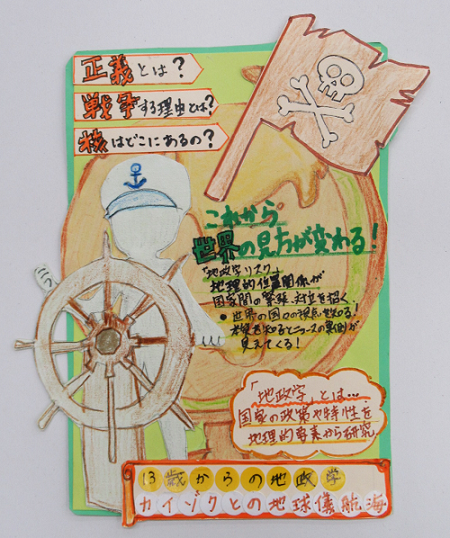 正義とは?
戦争する理由とは?
核はどこにあるの?
これから
世界の見方が変わる!
「地政学リスク」
地理的位置関係が
国家間の緊張、対立を招く
●世界の国々の視点を知る!
本質を知るとニュースの裏側が
見えてくる!
「地政学」とは…
国家の政策や特性を
地理的要素から研究
13歳からの地政学
カイゾクとの地球儀航海